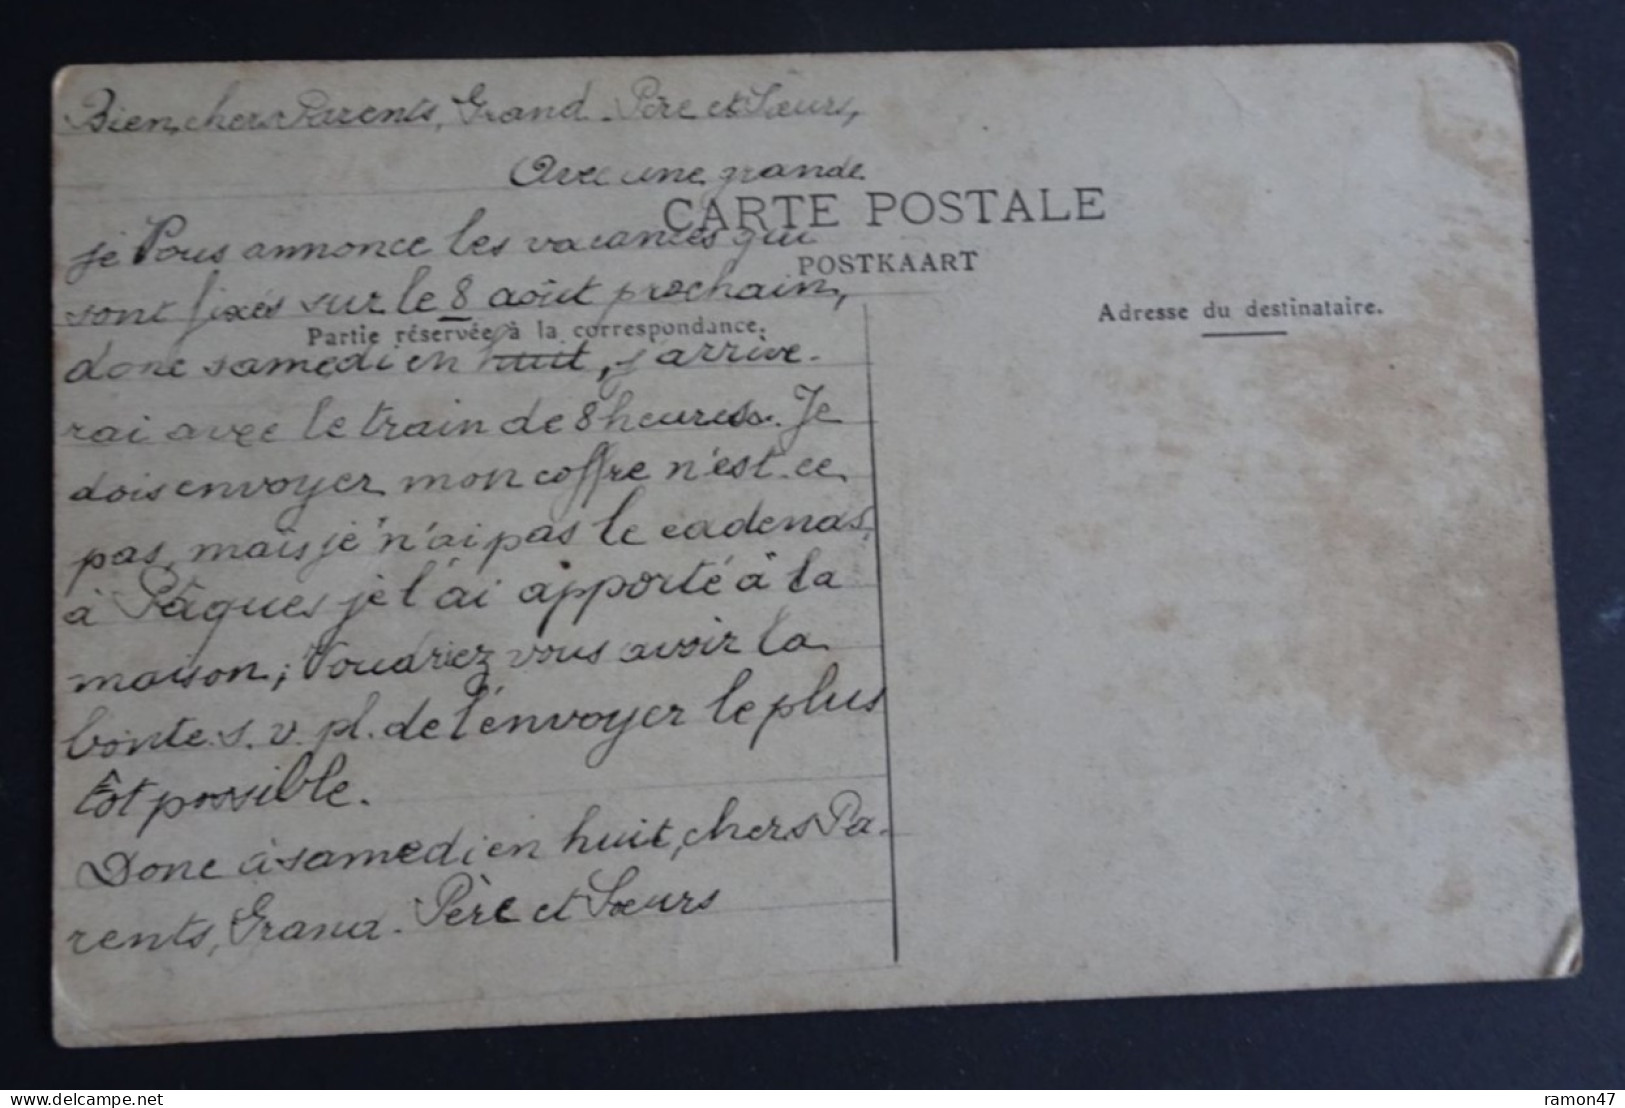 Bien chers Parents, Grand-Père et Sœurs,
Avec une grande
CARTE POSTALE
je Vous annonce les vacances qui
POSTKAART
sont fixés sur le 8 août prochain,
Adresse du destinataire.
Partie réservée à la correspondance.
donc samedi en huit, j'arrive-
rai avec le train de 8 heures. Je
dois envoyer mon coffre n'est-ce
pas, mais je n'ai pas le cadenas,
à Pâques je l'ai apporté à la
maison; Voudriez vous avoir la
bonté s. v. pl. de l'envoyer le plus
tôt possible.
Donc à samedi en huit, chers Pa-
rents, Grand-Père et Sœurs
ramon47